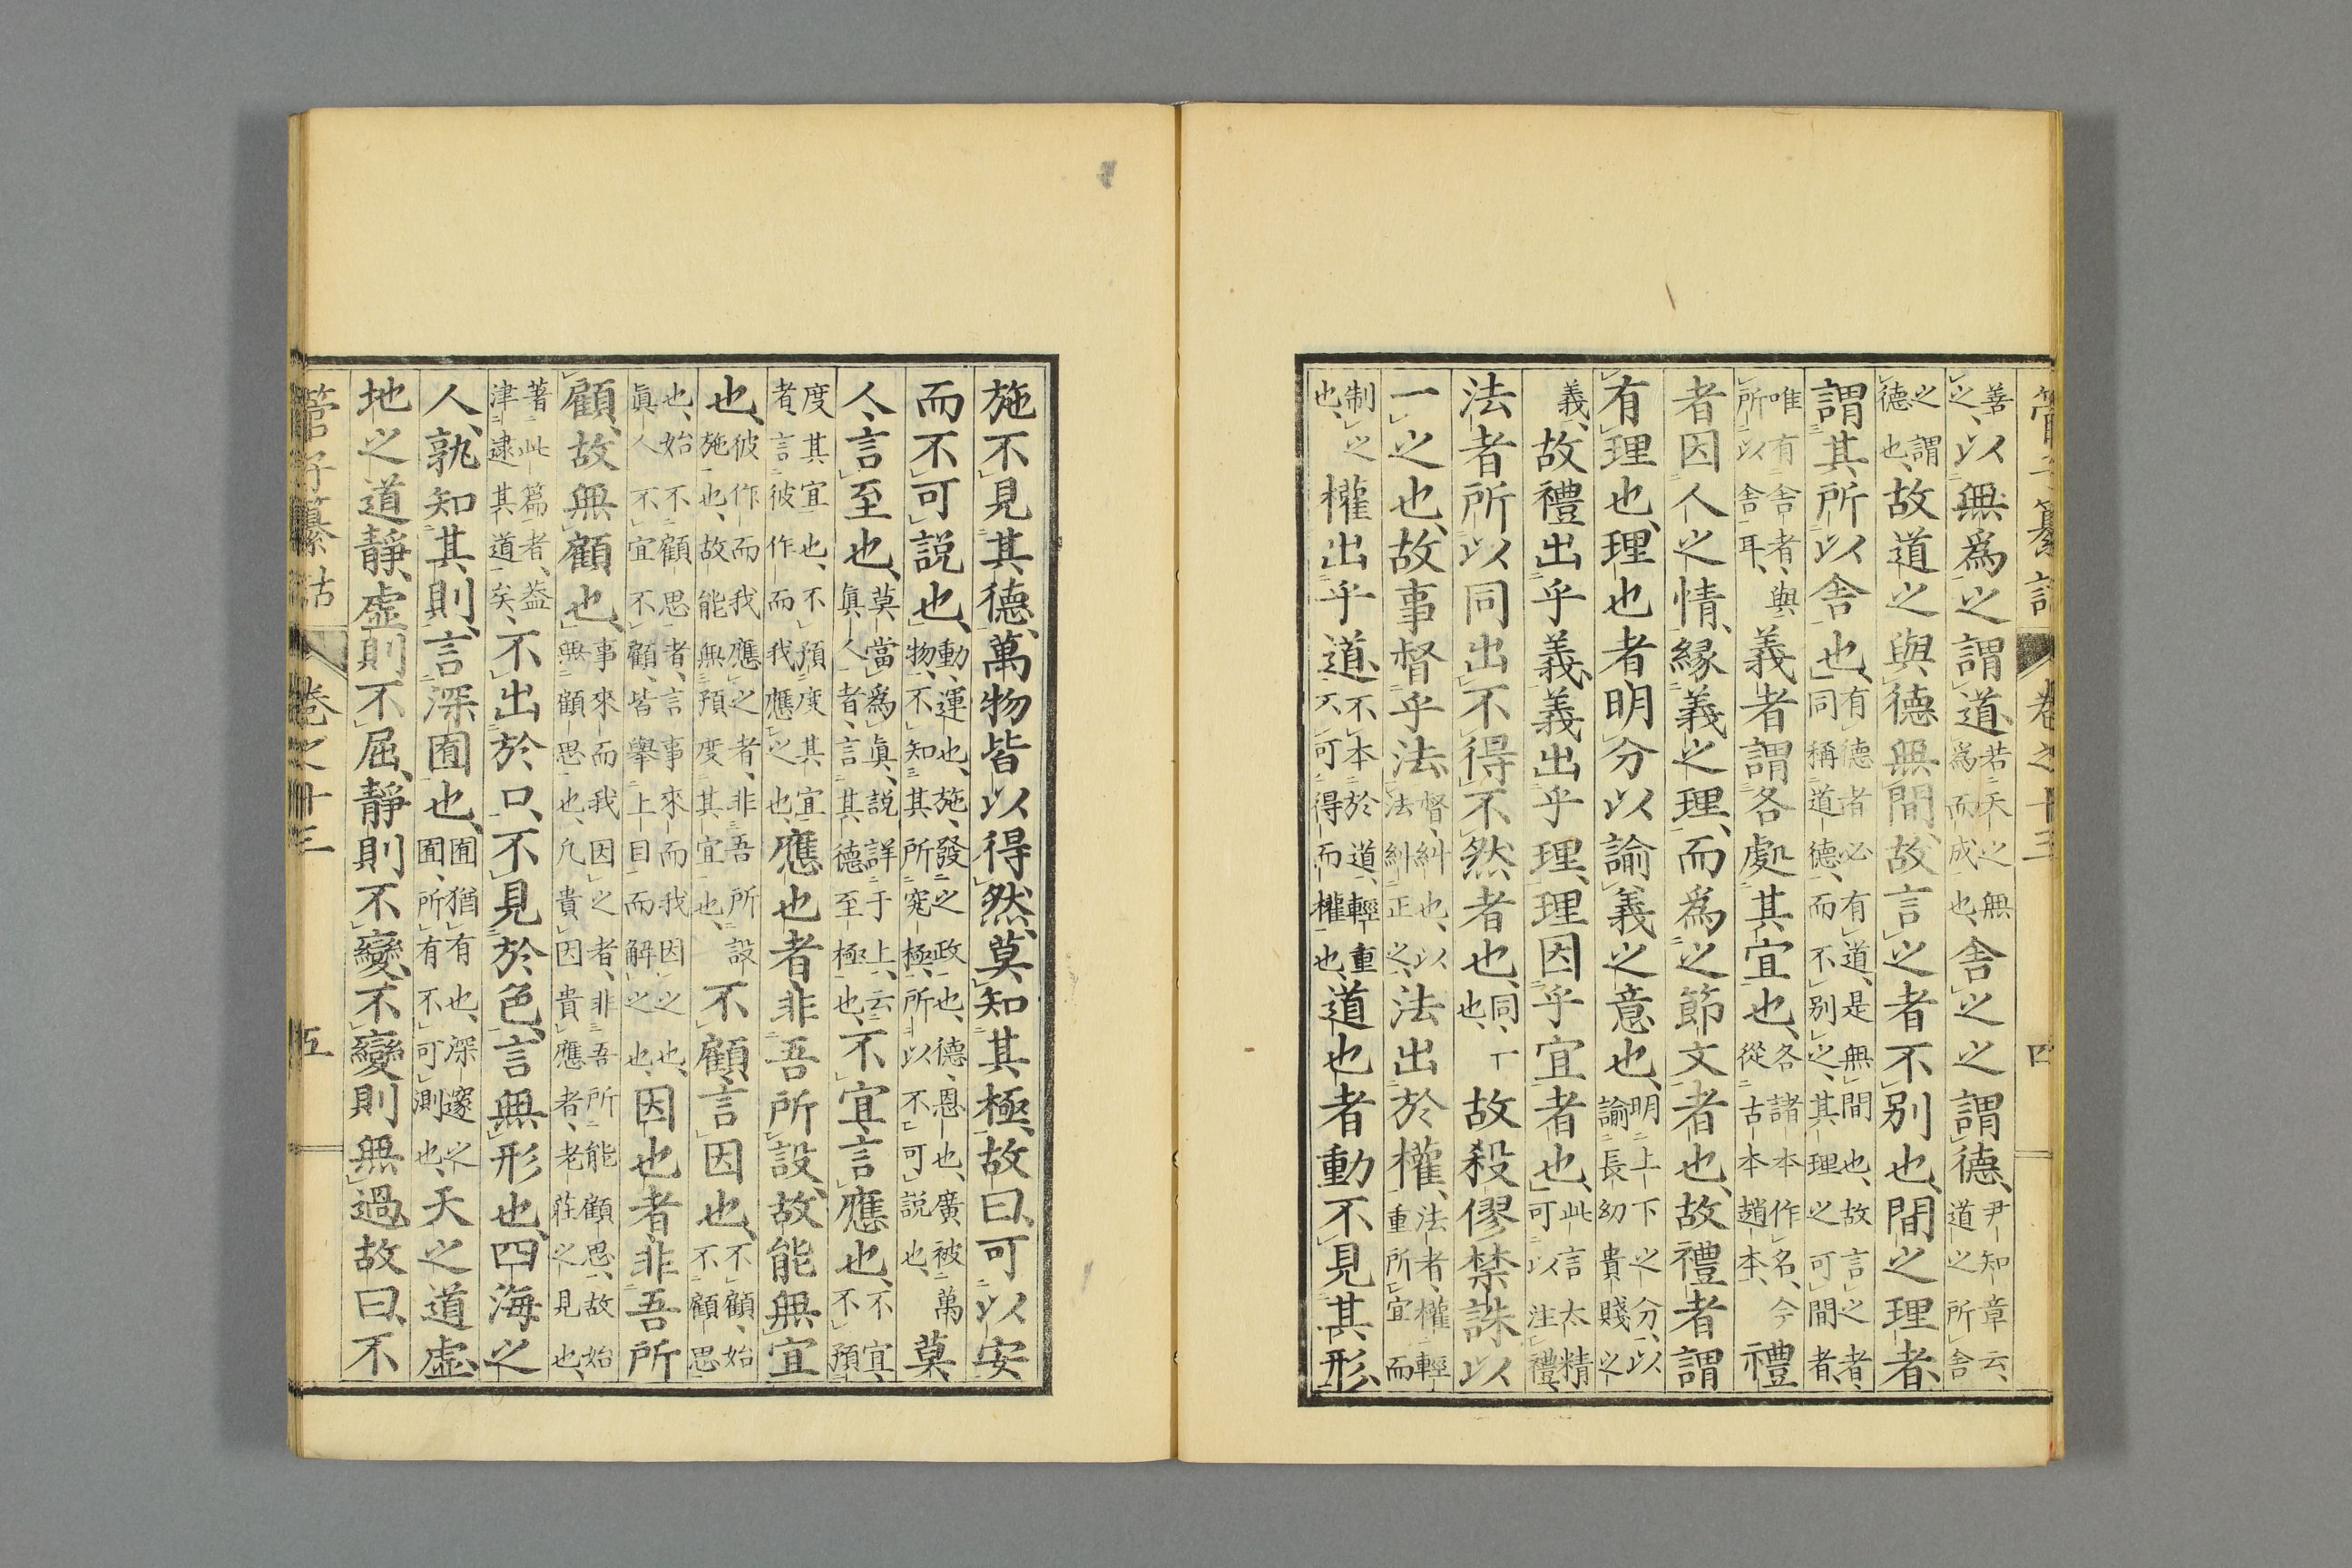 管子纂詁 卷之十三 四
善之、以無爲之謂道、若天之無爲而成也、舍之之謂德、尹知章云、道之所舍
之謂德也、故道之與德無間、故言之者不別也、間之理者、
謂其所以舍也、有德者必有道、是無間也、故言之者、同稱道德、而不別之、其理之可間者、
唯有舍者、與所以舍耳、義者謂各處其宜也、各諸本作名、今從古本趙本、禮
者因人之情、緣義之理、而爲之節文者也、故禮者謂
有理也、理也者明分以諭義之意也、明上下之分、以諭長幼貴賤之
義、故禮出乎義、義出乎理、理因乎宜者也、此言太精可以注禮、
法者所以同出、不得不然者也、同、一也、故殺僇禁誅以
一之也、故事督乎法、督、糾也、以法糾正之、法出於權、法者、權輕重所宜而
制之也、權出乎道、不本於道、輕重不可得而權也、道也者動不見其形、
施不見其德、萬物皆以得然、莫知其極、故曰、可以安
而不可説也、動、運也、施、發之政也、德、恩也、廣被萬物、不知其所究極、所以不可説也、莫
人、言至也、莫當爲眞、説詳于上、云眞人者、言其德至極也、不宜、言應也、不宜、不預
度其宜也、不預度其宜者、言彼作而我應之也、應也者、非吾所設、故能無宜
也、彼作而我應之者、非吾所設也、施也、故能無預度其宜也、不顧、言因也、不顧、始不顧思
也、始不顧思者、言事來而我因之也、眞人不宜不顧、皆擧上目而解之也、因也者、非吾所
顧、故無顧也、事來而我因之者、非吾所能顧思、故始無顧思也、凡貴因貴應者、老莊之見也、
著此篇者、葢津逮其道矣、不出於口、不見於色、言無形也、四海之
人、孰知其則、言深囿也、囿猶有也、深邃之囿、所有不可測也、天之道虛
地之道靜、虛則不屈、靜則不變、不變則無過、故曰、不
管子纂詁 卷之十三 五